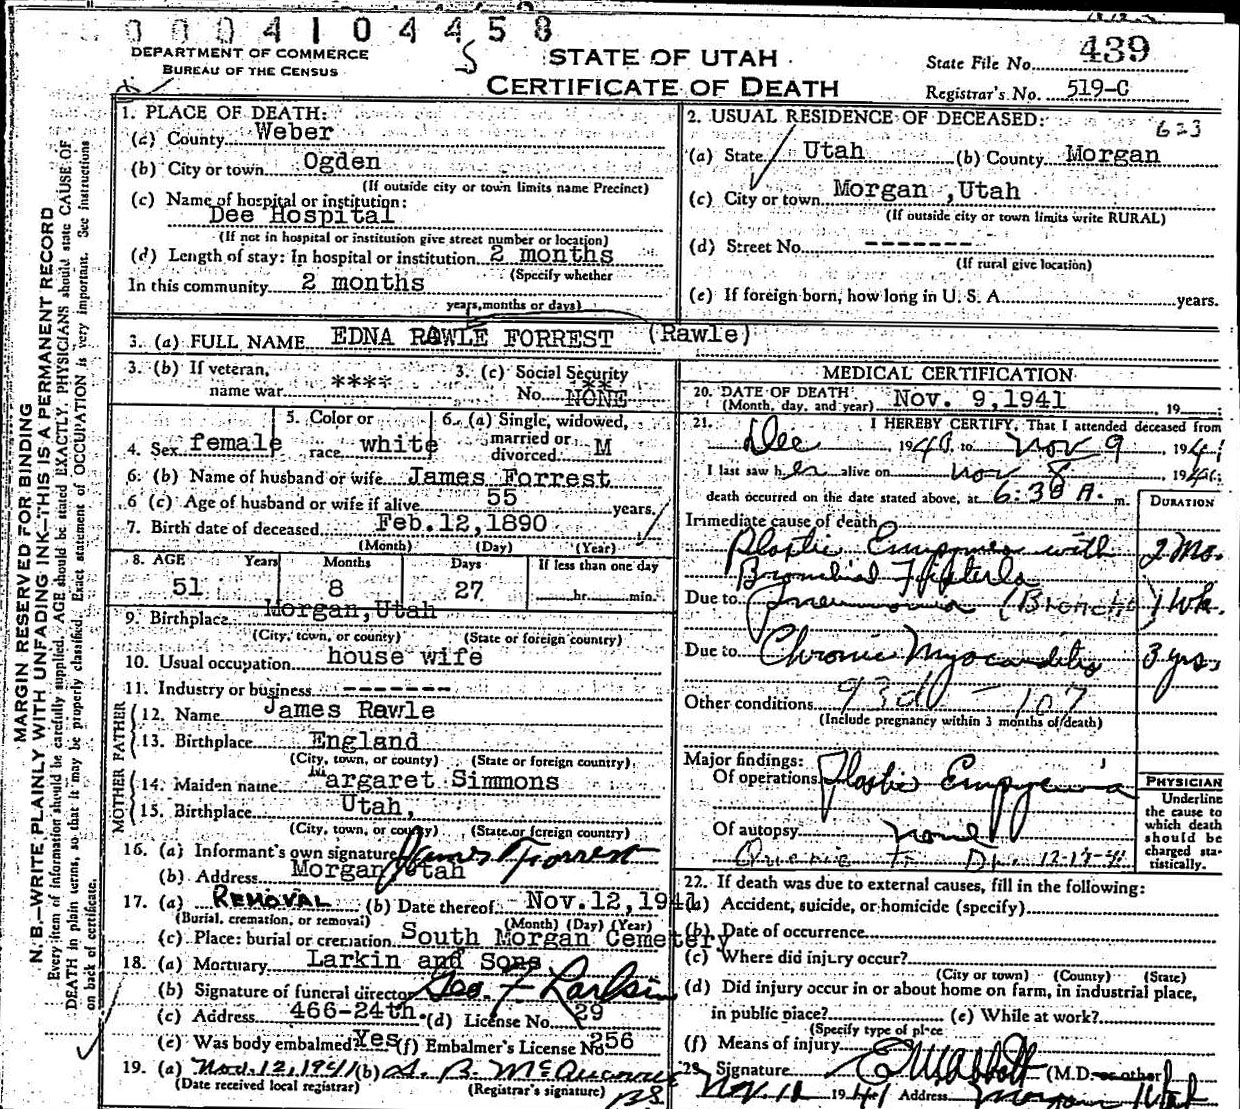 0004104458
DEPARTMENT OF COMMERCE
BUREAU OF THE CENSUS
S
STATE OF UTAH
CERTIFICATE OF DEATH
State File No. 439
Registrar's No. 519-C
MARGIN RESERVED FOR BINDING
N. B.—WRITE PLAINLY WITH UNFADING INK—THIS IS A PERMANENT RECORD
Every item of information should be carefully supplied. AGE should be stated EXACTLY. PHYSICIANS should state CAUSE OF
DEATH in plain terms, so that it may be properly classified. Exact statement of OCCUPATION is very important. See instructions
on back of certificate.
1. PLACE OF DEATH:
(a) County Weber
(b) City or town Ogden
(If outside city or town limits name Precinct)
(c) Name of hospital or institution:
Dee Hospital
(If not in hospital or institution give street number or location)
(d) Length of stay: In hospital or institution 2 months
(Specify whether
In this community 2 months
years, months or days)
2. USUAL RESIDENCE OF DECEASED:
623
(a) State Utah (b) County Morgan
(c) City or town Morgan ,Utah
(If outside city or town limits write RURAL)
(d) Street No. -------
(If rural give location)
(e) If foreign born, how long in U. S. A. years.
3. (a) FULL NAME EDNA RAWLE FORREST (Rawle)
3. (b) If veteran,
name war **** 
3. (c) Social Security
No. NONE
4. Sex female
5. Color or
race white
6. (a) Single, widowed,
married or
divorced M
6. (b) Name of husband or wife James Forrest
6 (c) Age of husband or wife if alive 55 years.
7. Birth date of deceased Feb.12,1890
(Month) (Day) (Year)
8. AGE Years Months Days If less than one day
51 8 27 hr. min.
9. Birthplace Morgan,Utah
(City, town, or county) (State or foreign country)
10. Usual occupation house wife
11. Industry or business -------
FATHER
12. Name James Rawle
13. Birthplace England
(City, town, or county) (State or foreign country)
MOTHER
14. Maiden name Margaret Simmons
15. Birthplace Utah,
(City, town, or county) (State or foreign country)
16. (a) Informant's own signature James Forrest
(b) Address Morgan Utah
17. (a) REMOVAL (b) Date thereof Nov.12,1941
(Burial, cremation, or removal) (Month) (Day) (Year)
(c) Place: burial or cremation South Morgan Cemetery
18. (a) Mortuary Larkin and Sons
(b) Signature of funeral director Geo. F Larkin
(c) Address 466-24th. (d) License No. 29
(e) Was body embalmed? Yes (f) Embalmer's License No. 256
19. (a) Nov. 12, 1941 (b)
(Date received local registrar) (Registrar's signature)
MEDICAL CERTIFICATION
20. DATE OF DEATH
(Month, day, and year) Nov. 9,1941 , 19
21. I HEREBY CERTIFY, That I attended deceased from
Dec 1940, to Nov 9 1941
I last saw her alive on Nov 8 1941;
death occurred on the date stated above, at 6:30 A. m.
DURATION
Immediate cause of death
Plastic Empyema with 2 Mo.
Bronchial Fistula
Due to Pneumonia (Broncho) 1 Wk.
Due to Chronic Myocarditis 3 yrs.
93d - 107
Other conditions
(Include pregnancy within 3 months of death)
Major findings:
Of operations Plastic Empyema
Of autopsy none
12-17-41
PHYSICIAN
Underline
the cause to
which death
should be
charged sta-
tistically.
22. If death was due to external causes, fill in the following:
(a) Accident, suicide, or homicide (specify)
(b) Date of occurrence
(c) Where did injury occur?
(City or town) (County) (State)
(d) Did injury occur in or about home on farm, in industrial place,
in public place? (e) While at work?
(Specify type of place
(f) Means of injury
23. Signature E W Abbott (M.D. or other)
Nov. 12 1941 Address Morgan Utah